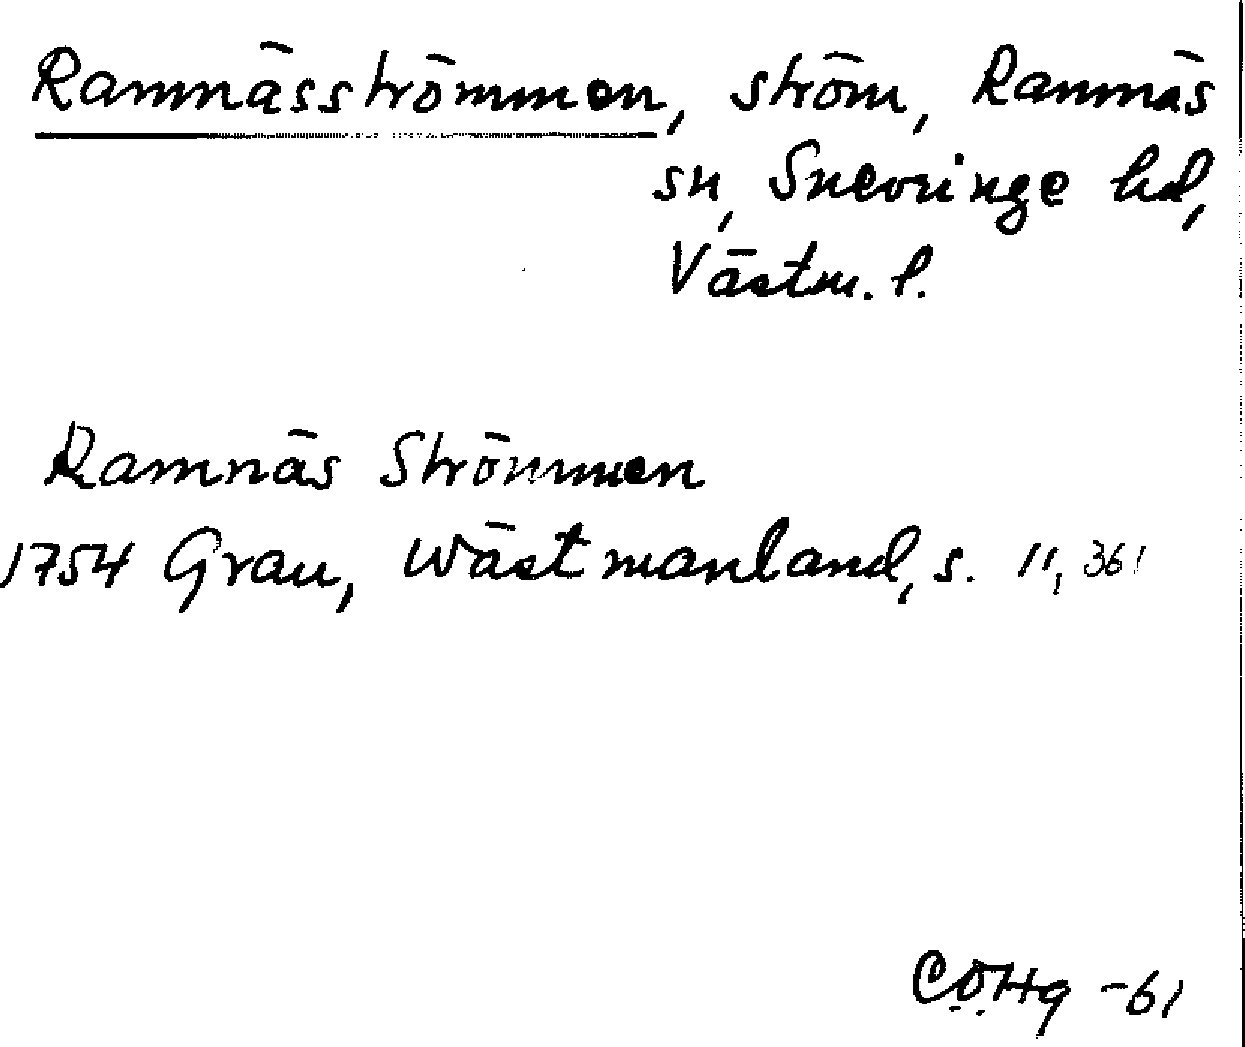 Ramnäsströmmen, ström, Ramnäs
sn, Snevringe hd,
Västm. l.
Ramnäs Strömmen
1754 Grau, Wästmanland, s. 11, 361
C.O.Hg -61